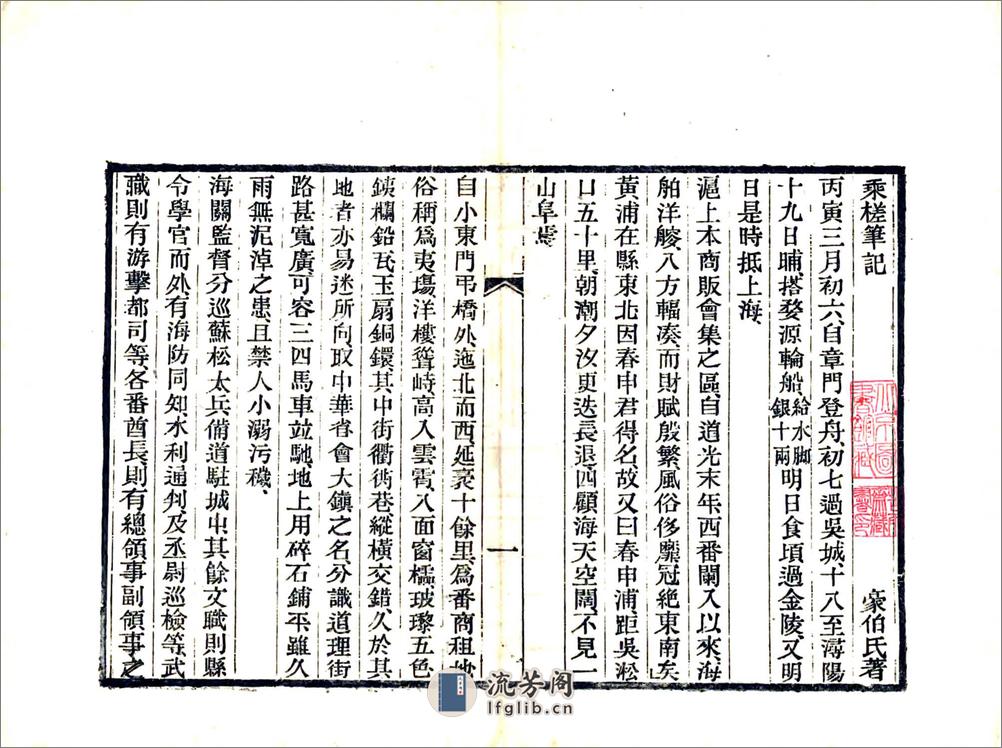 乘槎筆記
豪伯氏著
丙寅三月初六、自章門登舟、初七過吳城、十八至潯陽
十九日晡、搭婺源輪船、給水脚銀十兩明日食頃過金陵、又明
日是時抵上海、
滬上本商販會集之區、自道光末年、西番闌入以來、海
舶洋艘、八方輻凑、而財賦殷繁、風俗侈靡、冠絕東南矣
黃浦在縣東北、因春申君得名、故又曰春申浦、距吳淞
口五十里、朝潮夕汐、更迭長退、四顧海天空闊、不見一
山阜焉
一
自小東門弔橋外、迤北而西、延袤十餘里、爲番商租地
俗稱爲夷塲、洋樓聳峙、高入雲霄、八面窗櫺、玻瓈五色
鐵欄鉛瓦、玉扇銅鐶、其中街衢衖巷、縱橫交錯、久於其
地者亦易迷所向、取中華省會大鎮之名、分識道理、街
路甚寬廣、可容三四馬車並馳、地上用碎石鋪平、雖久
雨無泥淖之患、且禁人小溺污穢、
海關監督、分巡蘇松太兵備道、駐城中、其餘文職、則縣
令學官而外、有海防同知、水利通判、及丞尉巡檢等、武
職則有游擊都司等、各番酋長、則有總領事副領事之
流芳阁
lfglib.cn